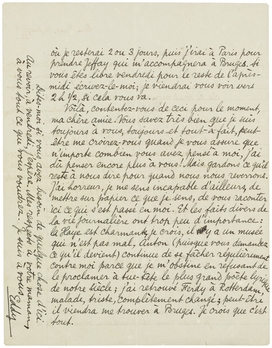 où je resterai 2 ou 3 jours, puis j'irai à Paris pour
prendre Jeffay qui m'accompagnera à Bruges. Si
vous êtes libre vendredi pour le reste de l'après-
midi écrivez-le-moi; je viendrai vous voir vers
2 h ½, si cela vous va.
Voilà, contentez-vous de ceci pour le moment,
ma chère amie. Vous savez très bien que je suis
toujours à vous, toujours et tout à fait, peut-
être me croirez-vous quand je vous assure que
n'importe combien vous avez pensé à moi, j'ai
dû penser encore plus à vous. Mais gardons ce qu'il
reste à nous dire pour quand nous nous reverrons.
J'ai horreur, je me sens incapable d'ailleurs, de
mettre sur papier ce que je sens, de vous raconter
ici ce qui s'est passé en moi. Et les faits divers de
la vie journalière ont trop peu d'importance:
la Haye est charmante, je crois, il y a un musée
qui n'est pas mal, (puisque vous demandez
ce qu'il devient) continue de se fâcher régulièrement
contre moi parce que je m'obstine en refusant de
le proclamer à tue-tête le plus grand poète lyrique
de notre siècle; j'ai retrouvé Ferdy à Rotterdam,
malade, triste, complètement changé; peut-être
il viendra me trouver à Bruges. Je crois que c'est
tout.
Dites-moi si vous avez besoin de quelque chose d'ici.
Au revoir, à vendredi j'espère. Mes respects à votre maman,
à vous tout ce que vous voudrez. Je suis à vous
Eddy